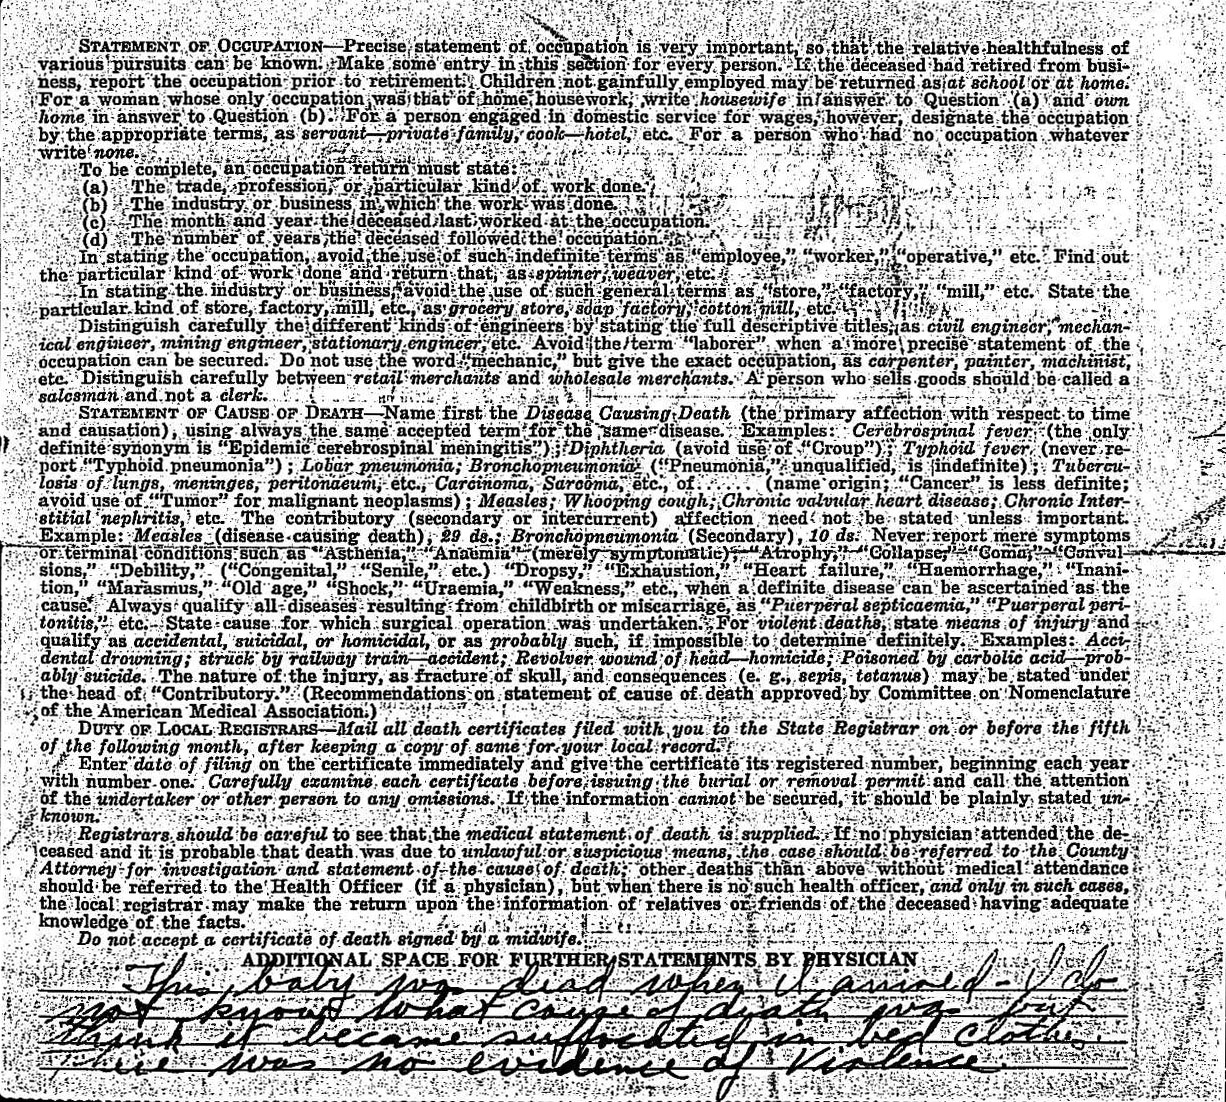 STATEMENT OF OCCUPATION—Precise statement of occupation is very important, so that the relative healthfulness of
various pursuits can be known. Make some entry in this section for every person. If the deceased had retired from busi-
ness, report the occupation prior to retirement. Children not gainfully employed may be returned as at school or at home.
For a woman whose only occupation was that of home housework, write housewife in answer to Question (a) and own
home in answer to Question (b). For a person engaged in domestic service for wages, however, designate the occupation
by the appropriate terms, as servant—private family, cook—hotel, etc. For a person who had no occupation whatever
write none.
To be complete, an occupation return must state:
(a) The trade, profession, or particular kind of work done.
(b) The industry or business in which the work was done.
(c) The month and year the deceased last worked at the occupation.
(d) The number of years the deceased followed the occupation.
In stating the occupation, avoid the use of such indefinite terms as "employee," "worker," "operative," etc. Find out
the particular kind of work done and return that, as spinner, weaver, etc.
In stating the industry or business, avoid the use of such general terms as "store," "factory," "mill," etc. State the
particular kind of store, factory, mill, etc., as grocery store, soap factory, cotton mill, etc.
Distinguish carefully the different kinds of engineers by stating the full descriptive titles, as civil engineer, mechan-
ical engineer, mining engineer, stationary engineer, etc. Avoid the term "laborer" when a more precise statement of the
occupation can be secured. Do not use the word "mechanic," but give the exact occupation, as carpenter, painter, machinist,
etc. Distinguish carefully between retail merchants and wholesale merchants. A person who sells goods should be called a
salesman and not a clerk.
STATEMENT OF CAUSE OF DEATH—Name first the Disease Causing Death (the primary affection with respect to time
and causation), using always the same accepted term for the same disease. Examples: Cerebrospinal fever (the only
definite synonym is "Epidemic cerebrospinal meningitis"); Diphtheria (avoid use of "Croup"); Typhoid fever (never re-
port "Typhoid pneumonia"); Lobar pneumonia; Bronchopneumonia ("Pneumonia," unqualified, is indefinite); Tubercu-
losis of lungs, meninges, peritonaeum, etc., Carcinoma, Sarcoma, etc., of ...... (name origin; "Cancer" is less definite;
avoid use of "Tumor" for malignant neoplasms); Measles; Whooping cough; Chronic valvular heart disease; Chronic Inter-
stitial nephritis, etc. The contributory (secondary or intercurrent) affection need not be stated unless important.
Example: Measles (disease causing death), 29 ds.; Bronchopneumonia (Secondary), 10 ds. Never report mere symptoms
or terminal conditions such as "Asthenia," "Anaemia" (merely symptomatic), "Atrophy," "Collapse," "Coma," "Convul-
sions," "Debility," ("Congenital," "Senile," etc.) "Dropsy," "Exhaustion," "Heart failure," "Haemorrhage," "Inani-
tion," "Marasmus," "Old age," "Shock," "Uraemia," "Weakness," etc., when a definite disease can be ascertained as the
cause. Always qualify all diseases resulting from childbirth or miscarriage, as "Puerperal septicaemia," "Puerperal peri-
tonitis," etc. State cause for which surgical operation was undertaken. For violent deaths, state means of injury and
qualify as accidental, suicidal, or homicidal, or as probably such, if impossible to determine definitely. Examples: Acci-
dental drowning; struck by railway train—accident; Revolver wound of head—homicide; Poisoned by carbolic acid—prob-
ably suicide. The nature of the injury, as fracture of skull, and consequences (e. g., sepis, tetanus) may be stated under
the head of "Contributory." (Recommendations on statement of cause of death approved by Committee on Nomenclature
of the American Medical Association.)
DUTY OF LOCAL REGISTRARS—Mail all death certificates filed with you to the State Registrar on or before the fifth
of the following month, after keeping a copy of same for your local record.
Enter date of filing on the certificate immediately and give the certificate its registered number, beginning each year
with number one. Carefully examine each certificate before issuing the burial or removal permit and call the attention
of the undertaker or other person to any omissions. If the information cannot be secured, it should be plainly stated un-
known.
Registrars should be careful to see that the medical statement of death is supplied. If no physician attended the de-
ceased and it is probable that death was due to unlawful or suspicious means, the case should be referred to the County
Attorney for investigation and statement of the cause of death; other deaths than above without medical attendance
should be referred to the Health Officer (if a physician), but when there is no such health officer, and only in such cases,
the local registrar may make the return upon the information of relatives or friends of the deceased having adequate
knowledge of the facts.
Do not accept a certificate of death signed by a midwife.
ADDITIONAL SPACE FOR FURTHER STATEMENTS BY PHYSICIAN
This baby was dead when I arrived - I do
not know what cause of death was but
think it became suffocated in bed clothes.
There was no evidence of Violence.